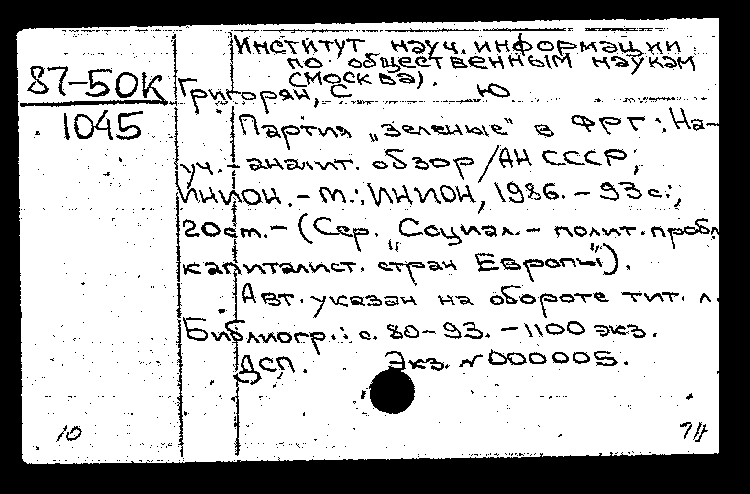 Институт науч. информации
по общественным наукам
(Москва).
87-50К
1045
Григорян, С Ю
Партия „зеленые" в ФРГ: На-
уч.-аналит. обзор/АН СССР;
ИНИОН. - М.: ИНИОН, 1986. - 93 с.;
20 см. - (Сер. „Социал. - полит. пробл.
капиталист. стран Европы").
Авт. указан на обороте тит. л.
Библиогр.: с. 80-93. - 1100 экз.
ДСП. Экз. №000005.
10